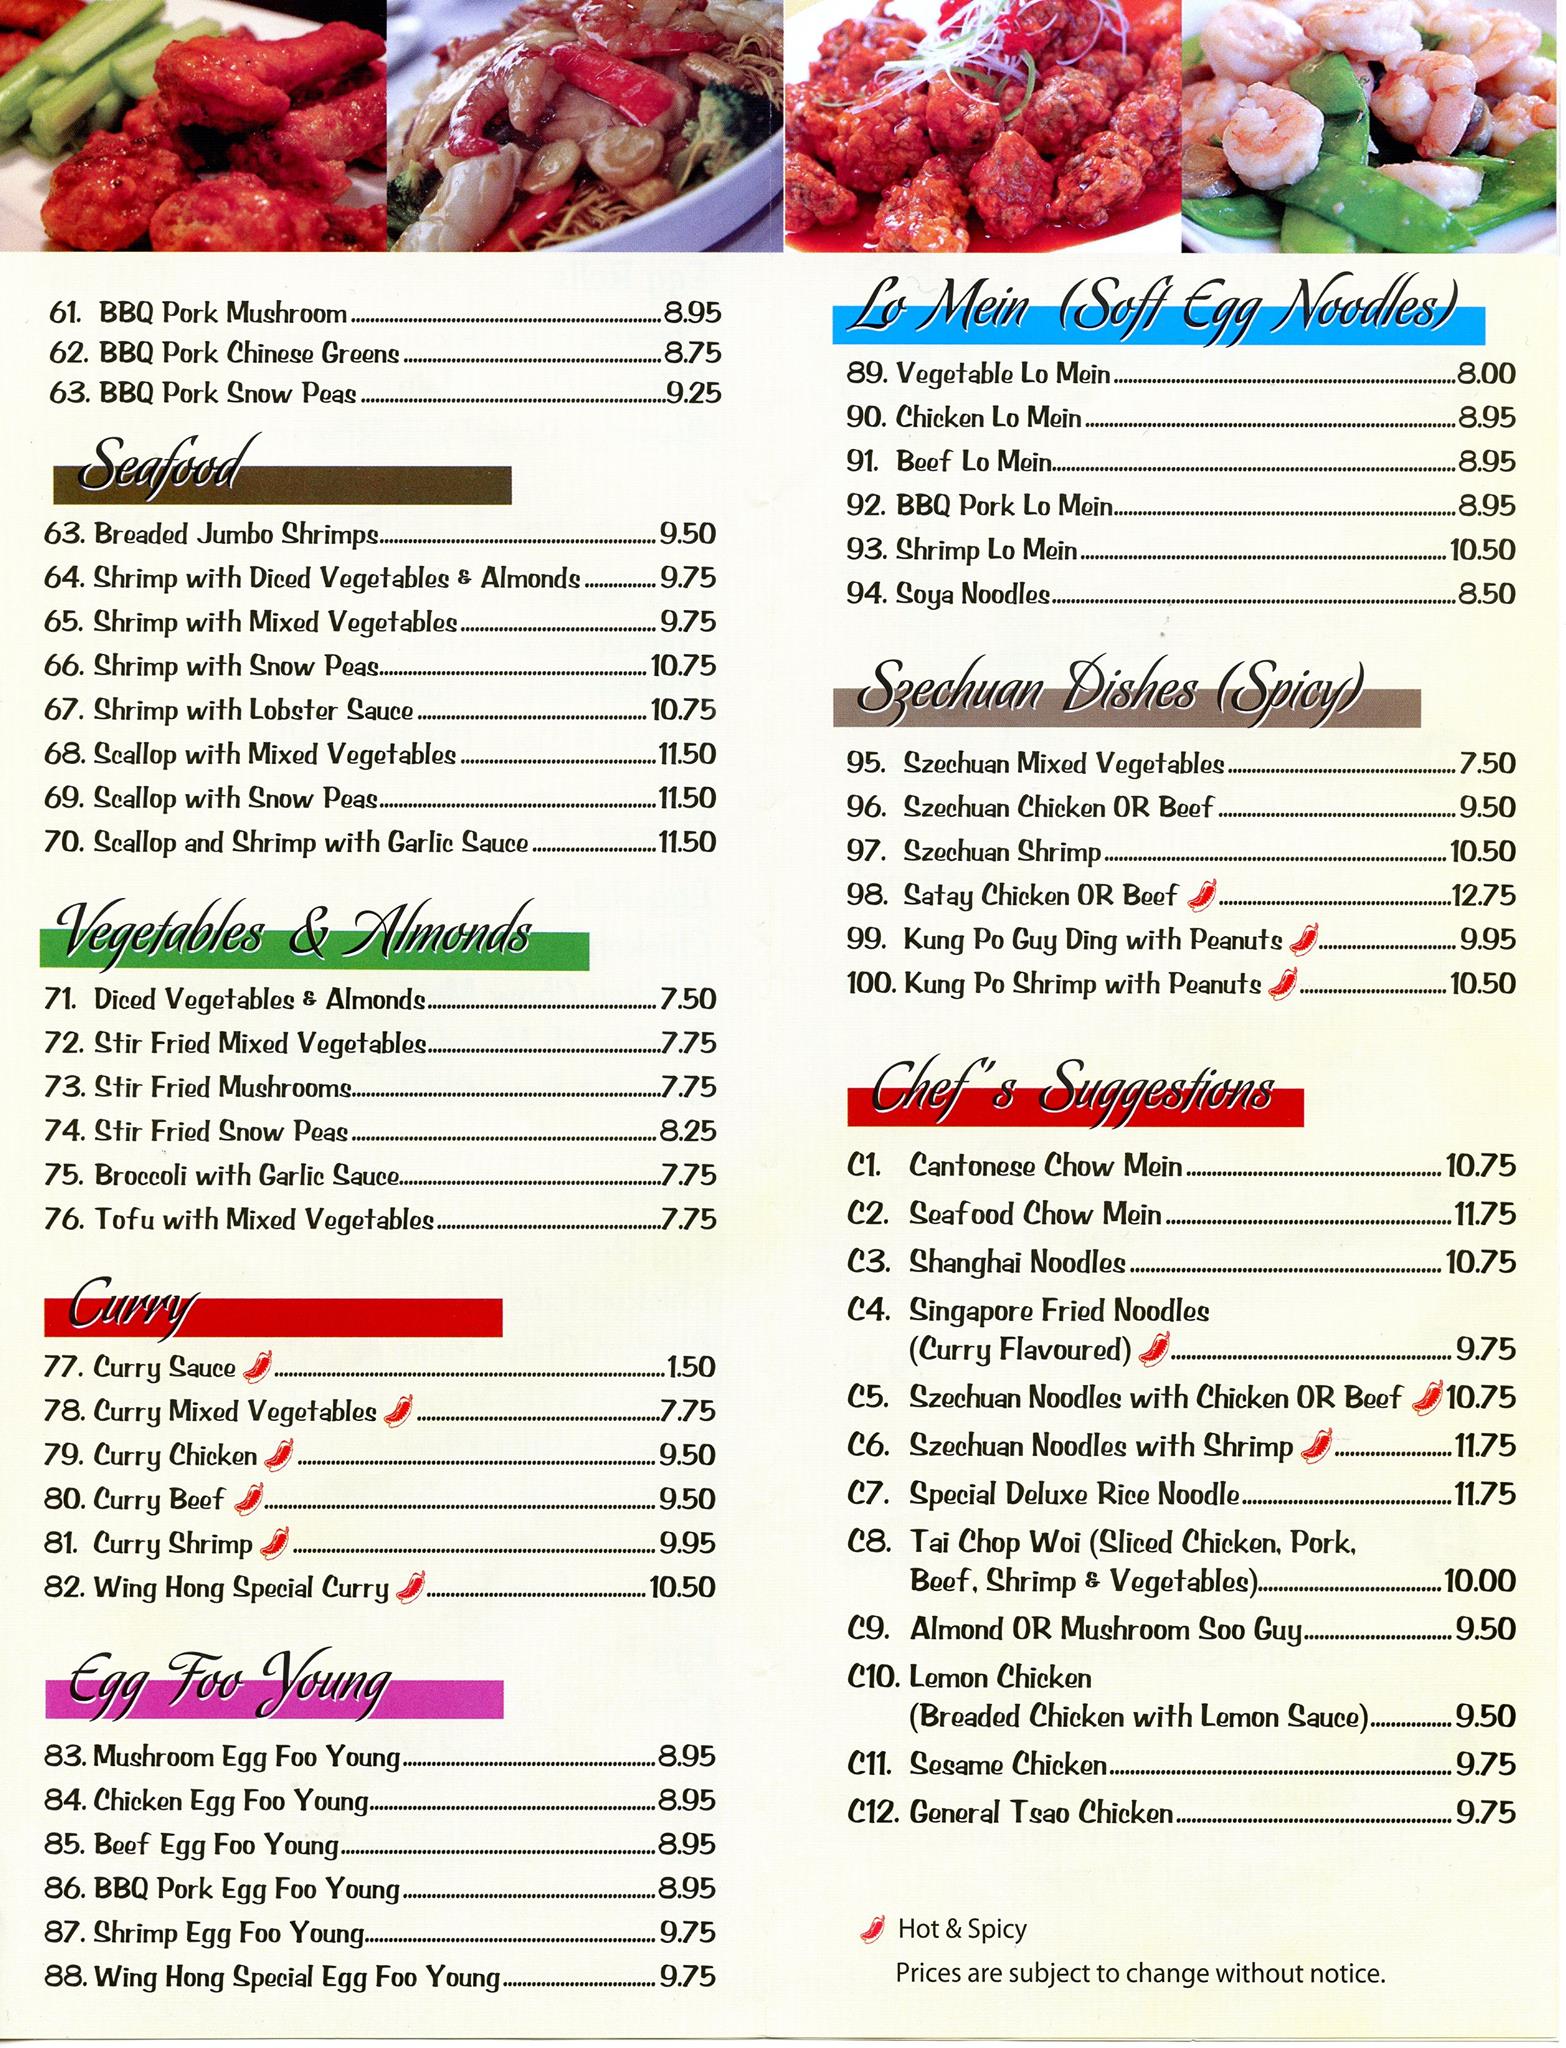 61. BBQ Pork Mushroom 8.95
62. BBQ Pork Chinese Greens 8.75
63. BBQ Pork Snow Peas 9.25
Seafood
63. Breaded Jumbo Shrimps 9.50
64. Shrimp with Diced Vegetables & Almonds 9.75
65. Shrimp with Mixed Vegetables 9.75
66. Shrimp with Snow Peas 10.75
67. Shrimp with Lobster Sauce 10.75
68. Scallop with Mixed Vegetables 11.50
69. Scallop with Snow Peas 11.50
70. Scallop and Shrimp with Garlic Sauce 11.50
Vegetables & Almonds
71. Diced Vegetables & Almonds 7.50
72. Stir Fried Mixed Vegetables 7.75
73. Stir Fried Mushrooms 7.75
74. Stir Fried Snow Peas 8.25
75. Broccoli with Garlic Sauce 7.75
76. Tofu with Mixed Vegetables 7.75
Curry
77. Curry Sauce 1.50
78. Curry Mixed Vegetables 7.75
79. Curry Chicken 9.50
80. Curry Beef 9.50
81. Curry Shrimp 9.95
82. Wing Hong Special Curry 10.50
Egg Foo Young
83. Mushroom Egg Foo Young 8.95
84. Chicken Egg Foo Young 8.95
85. Beef Egg Foo Young 8.95
86. BBQ Pork Egg Foo Young 8.95
87. Shrimp Egg Foo Young 9.75
88. Wing Hong Special Egg Foo Young 9.75
Lo Mein (Soft Egg Noodles)
89. Vegetable Lo Mein 8.00
90. Chicken Lo Mein 8.95
91. Beef Lo Mein 8.95
92. BBQ Pork Lo Mein 8.95
93. Shrimp Lo Mein 10.50
94. Soya Noodles 8.50
Szechuan Dishes (Spicy)
95. Szechuan Mixed Vegetables 7.50
96. Szechuan Chicken OR Beef 9.50
97. Szechuan Shrimp 10.50
98. Satay Chicken OR Beef 12.75
99. Kung Po Guy Ding with Peanuts 9.95
100. Kung Po Shrimp with Peanuts 10.50
Chef's Suggestions
C1. Cantonese Chow Mein 10.75
C2. Seafood Chow Mein 11.75
C3. Shanghai Noodles 10.75
C4. Singapore Fried Noodles
(Curry Flavoured) 9.75
C5. Szechuan Noodles with Chicken OR Beef 10.75
C6. Szechuan Noodles with Shrimp 11.75
C7. Special Deluxe Rice Noodle 11.75
C8. Tai Chop Woi (Sliced Chicken, Pork,
Beef, Shrimp & Vegetables) 10.00
C9. Almond OR Mushroom Soo Guy 9.50
C10. Lemon Chicken
(Breaded Chicken with Lemon Sauce) 9.50
C11. Sesame Chicken 9.75
C12. General Tsao Chicken 9.75
Hot & Spicy
Prices are subject to change without notice.